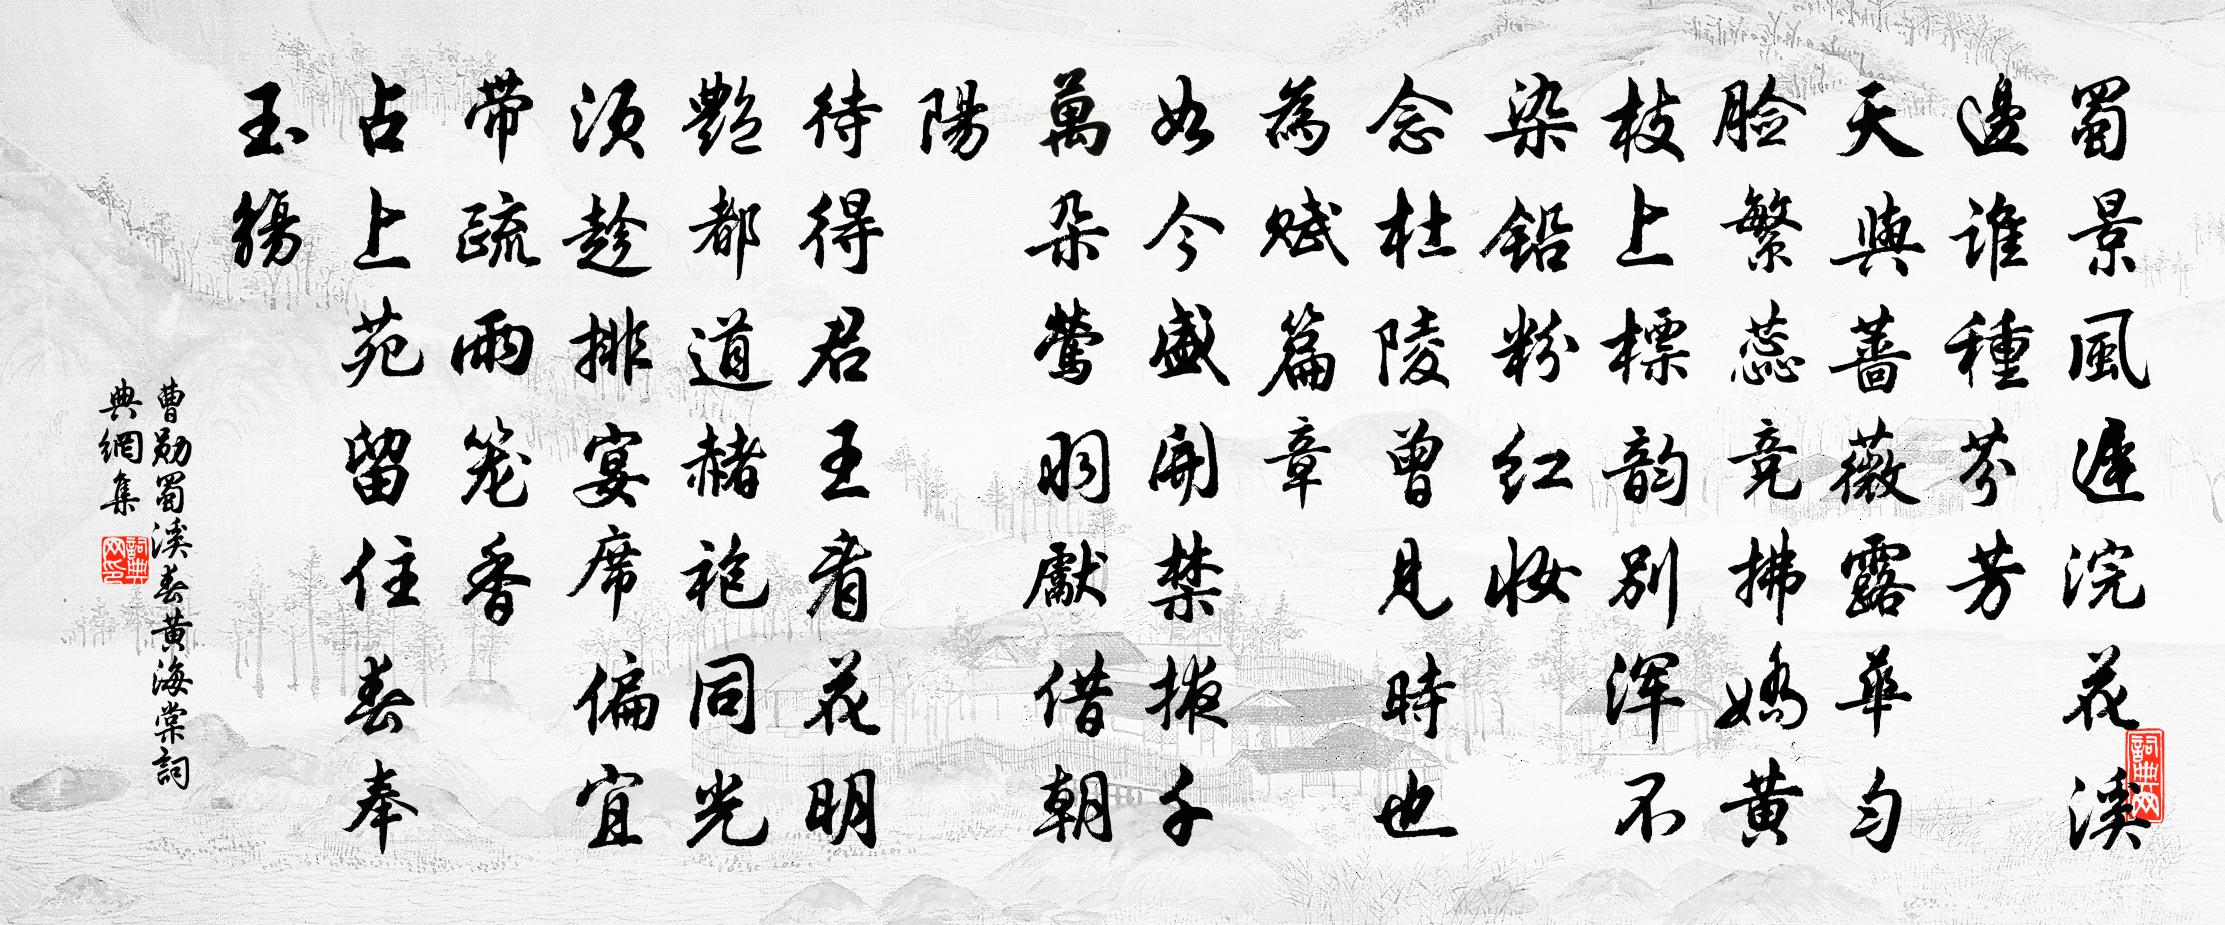 蜀景風遲浣花溪
邊誰種芬芳
天與薔薇露華勻
臉繁蕊竞拂嬌黃
枝上標韵别渾不
染鉛粉红妝
念杜陵曾見時也
為赋篇章
如今盛開禁掖千
萬朵鶯羽獻借朝
陽
待得君王看花明
艷都道赭袍同光
須趁排宴席偏宜
带疏雨笼香
占上苑留住春奉
玉觴
曹勋蜀溪春黄海棠詞
典網集
詞典网
詞典网